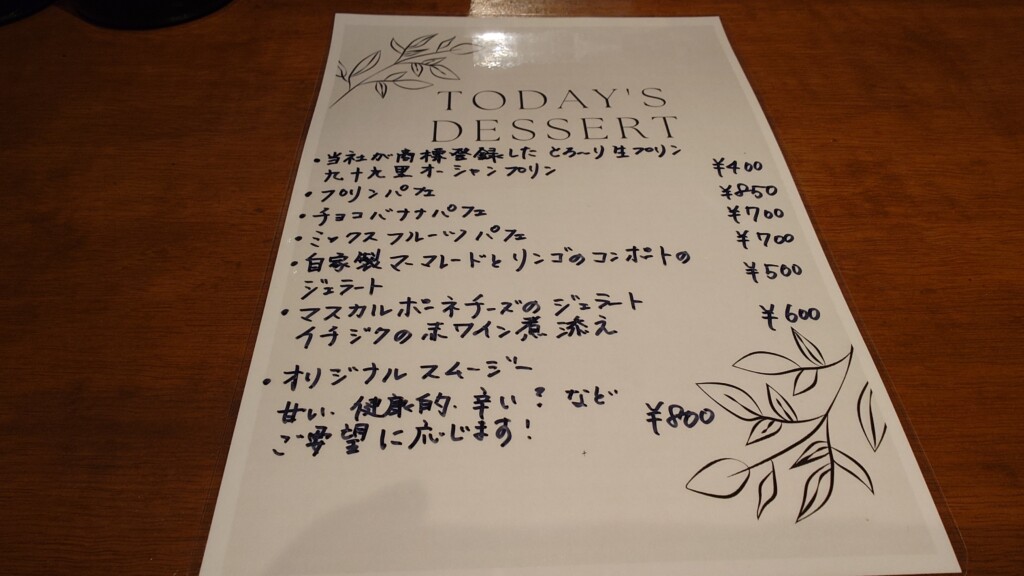 TODAY'S
DESSERT
・当社が商標登録した とろ〜り生プリン
九十九里オーシャンプリン ¥400
・プリンパフェ ¥850
・チョコバナナパフェ ¥700
・ミックスフルーツパフェ ¥700
・自家製マーマレードとリンゴのコンポートの
ジェラート ¥500
・マスカルポーネチーズのジェラート
イチジクの赤ワイン煮添え ¥600
・オリジナルスムージー
甘い、健康的、辛い？など
ご要望に応じます！ ¥800